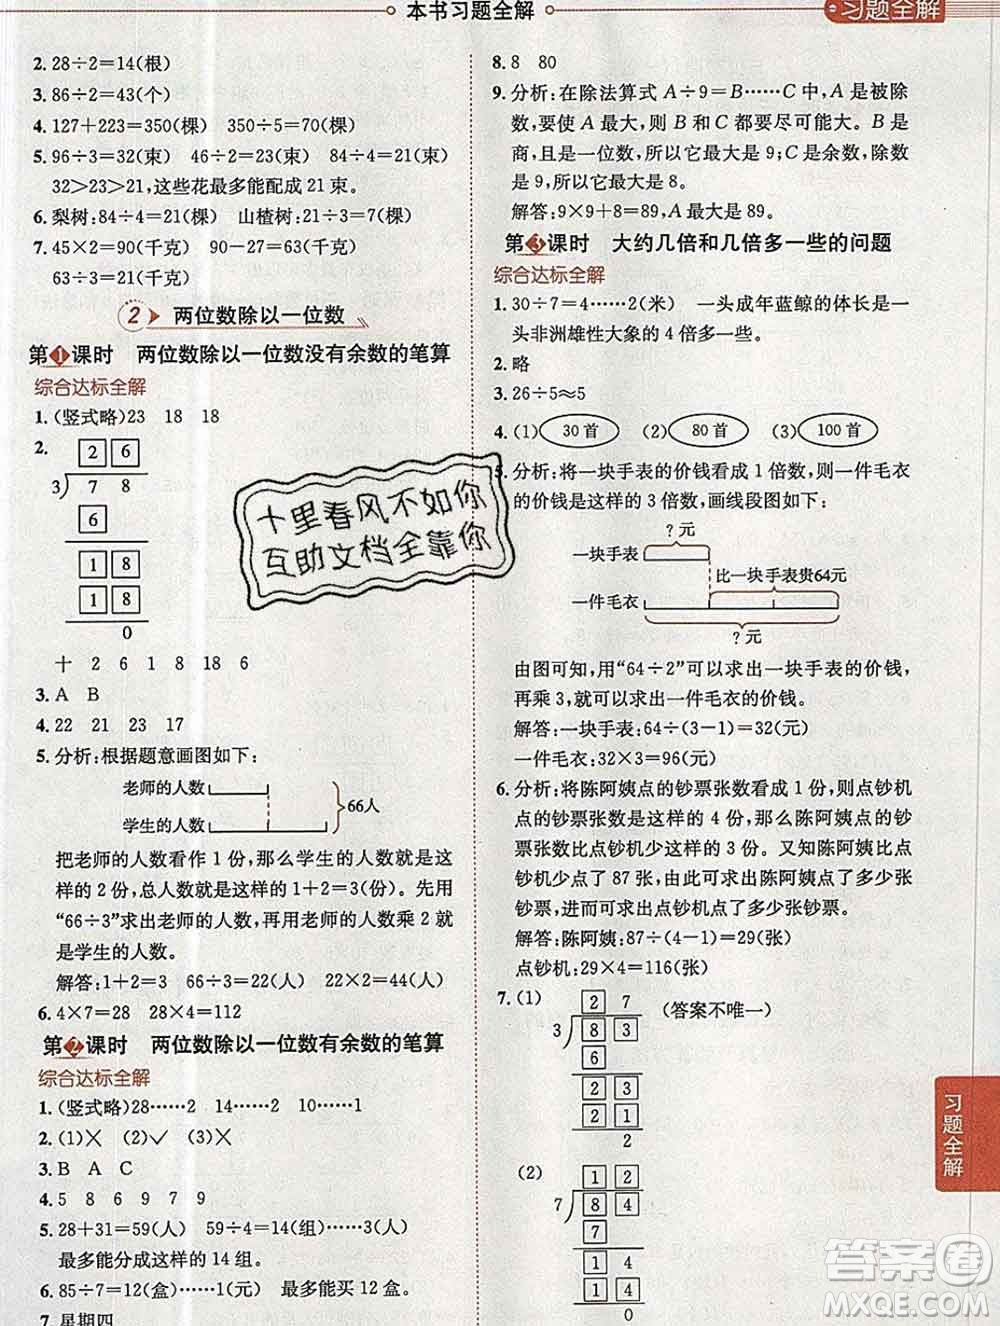 本书习题全解
习题全解
2. 28÷2=14(根)
3. 86÷2=43(个)
4. 127+223=350(棵) 350÷5=70(棵)
5. 96÷3=32(束) 46÷2=23(束) 84÷4=21(束)
32>23>21,这些花最多能配成 21 束。
6. 梨树:84÷4=21(棵) 山楂树:21÷3=7(棵)
7. 45×2=90(千克) 90-27=63(千克)
63÷3=21(千克)
2 两位数除以一位数
第1课时 两位数除以一位数没有余数的笔算
综合达标全解
1. (竖式略)23 18 18
2.
2 6
3 7 8
6
1 8
1 8
0
十 2 6 1 8 18 6
3. A B
4. 22 21 23 17
5. 分析:根据题意画图如下:
老师的人数
66人
学生的人数
把老师的人数看作 1 份,那么学生的人数就是这
样的 2 份,总人数就是这样的 1+2=3(份)。先用
“66÷3”求出老师的人数,再用老师的人数乘 2 就
是学生的人数。
解答:1+2=3 66÷3=22(人) 22×2=44(人)
6. 4×7=28 28×4=112
第2课时 两位数除以一位数有余数的笔算
综合达标全解
1. (竖式略)28……2 14……2 10……1
2. (1)× (2)✓ (3)×
3. B A C
4. 5 8 6 9 7 9
5. 28+31=59(人) 59÷4=14(组)……3(人)
最多能分成这样的 14 组。
6. 85÷7=12(盒)……1(元) 最多能买 12 盒。
7. 星期四
8. 8 80
9. 分析:在除法算式 A÷9=B……C 中,A 是被除
数,要使 A 最大,则 B 和 C 都要尽可能大。B 是
商,且是一位数,所以它最大是 9;C 是余数,除数
是 9,所以它最大是 8。
解答:9×9+8=89,A 最大是 89。
第3课时 大约几倍和几倍多一些的问题
综合达标全解
1. 30÷7=4……2(米) 一头成年蓝鲸的体长是一
头非洲雄性大象的 4 倍多一些。
2. 略
3. 26÷5≈5
4. (1) 30 首 (2) 80 首 (3) 100 首
5. 分析:将一块手表的价钱看成 1 倍数,则一件毛衣
的价钱是这样的 3 倍数,画线段图如下:
?元
一块手表
比一块手表贵64元
一件毛衣
?元
由图可知,用“64÷2”可以求出一块手表的价钱,
再乘 3,就可以求出一件毛衣的价钱。
解答:一块手表:64÷(3-1)=32(元)
一件毛衣:32×3=96(元)
6. 分析:将陈阿姨点的钞票张数看成 1 份,则点钞机
点的钞票张数是这样的 4 份,那么陈阿姨点的钞
票张数比点钞机少这样的 3 份。又知陈阿姨比
点钞机少点了 87 张,由此可求出陈阿姨点了多少张
钞票,进而可求出点钞机点了多少张钞票。
解答:陈阿姨:87÷(4-1)=29(张)
点钞机:29×4=116(张)
7. (1) (答案不唯一)
2 7
3 8 3
6
2 3
2 1
2
(2)
1 2
7 8 4
7
1 4
1 4
0
习题全解
十里春风不如你
互助文档全靠你
答案圈
MXQE.COM